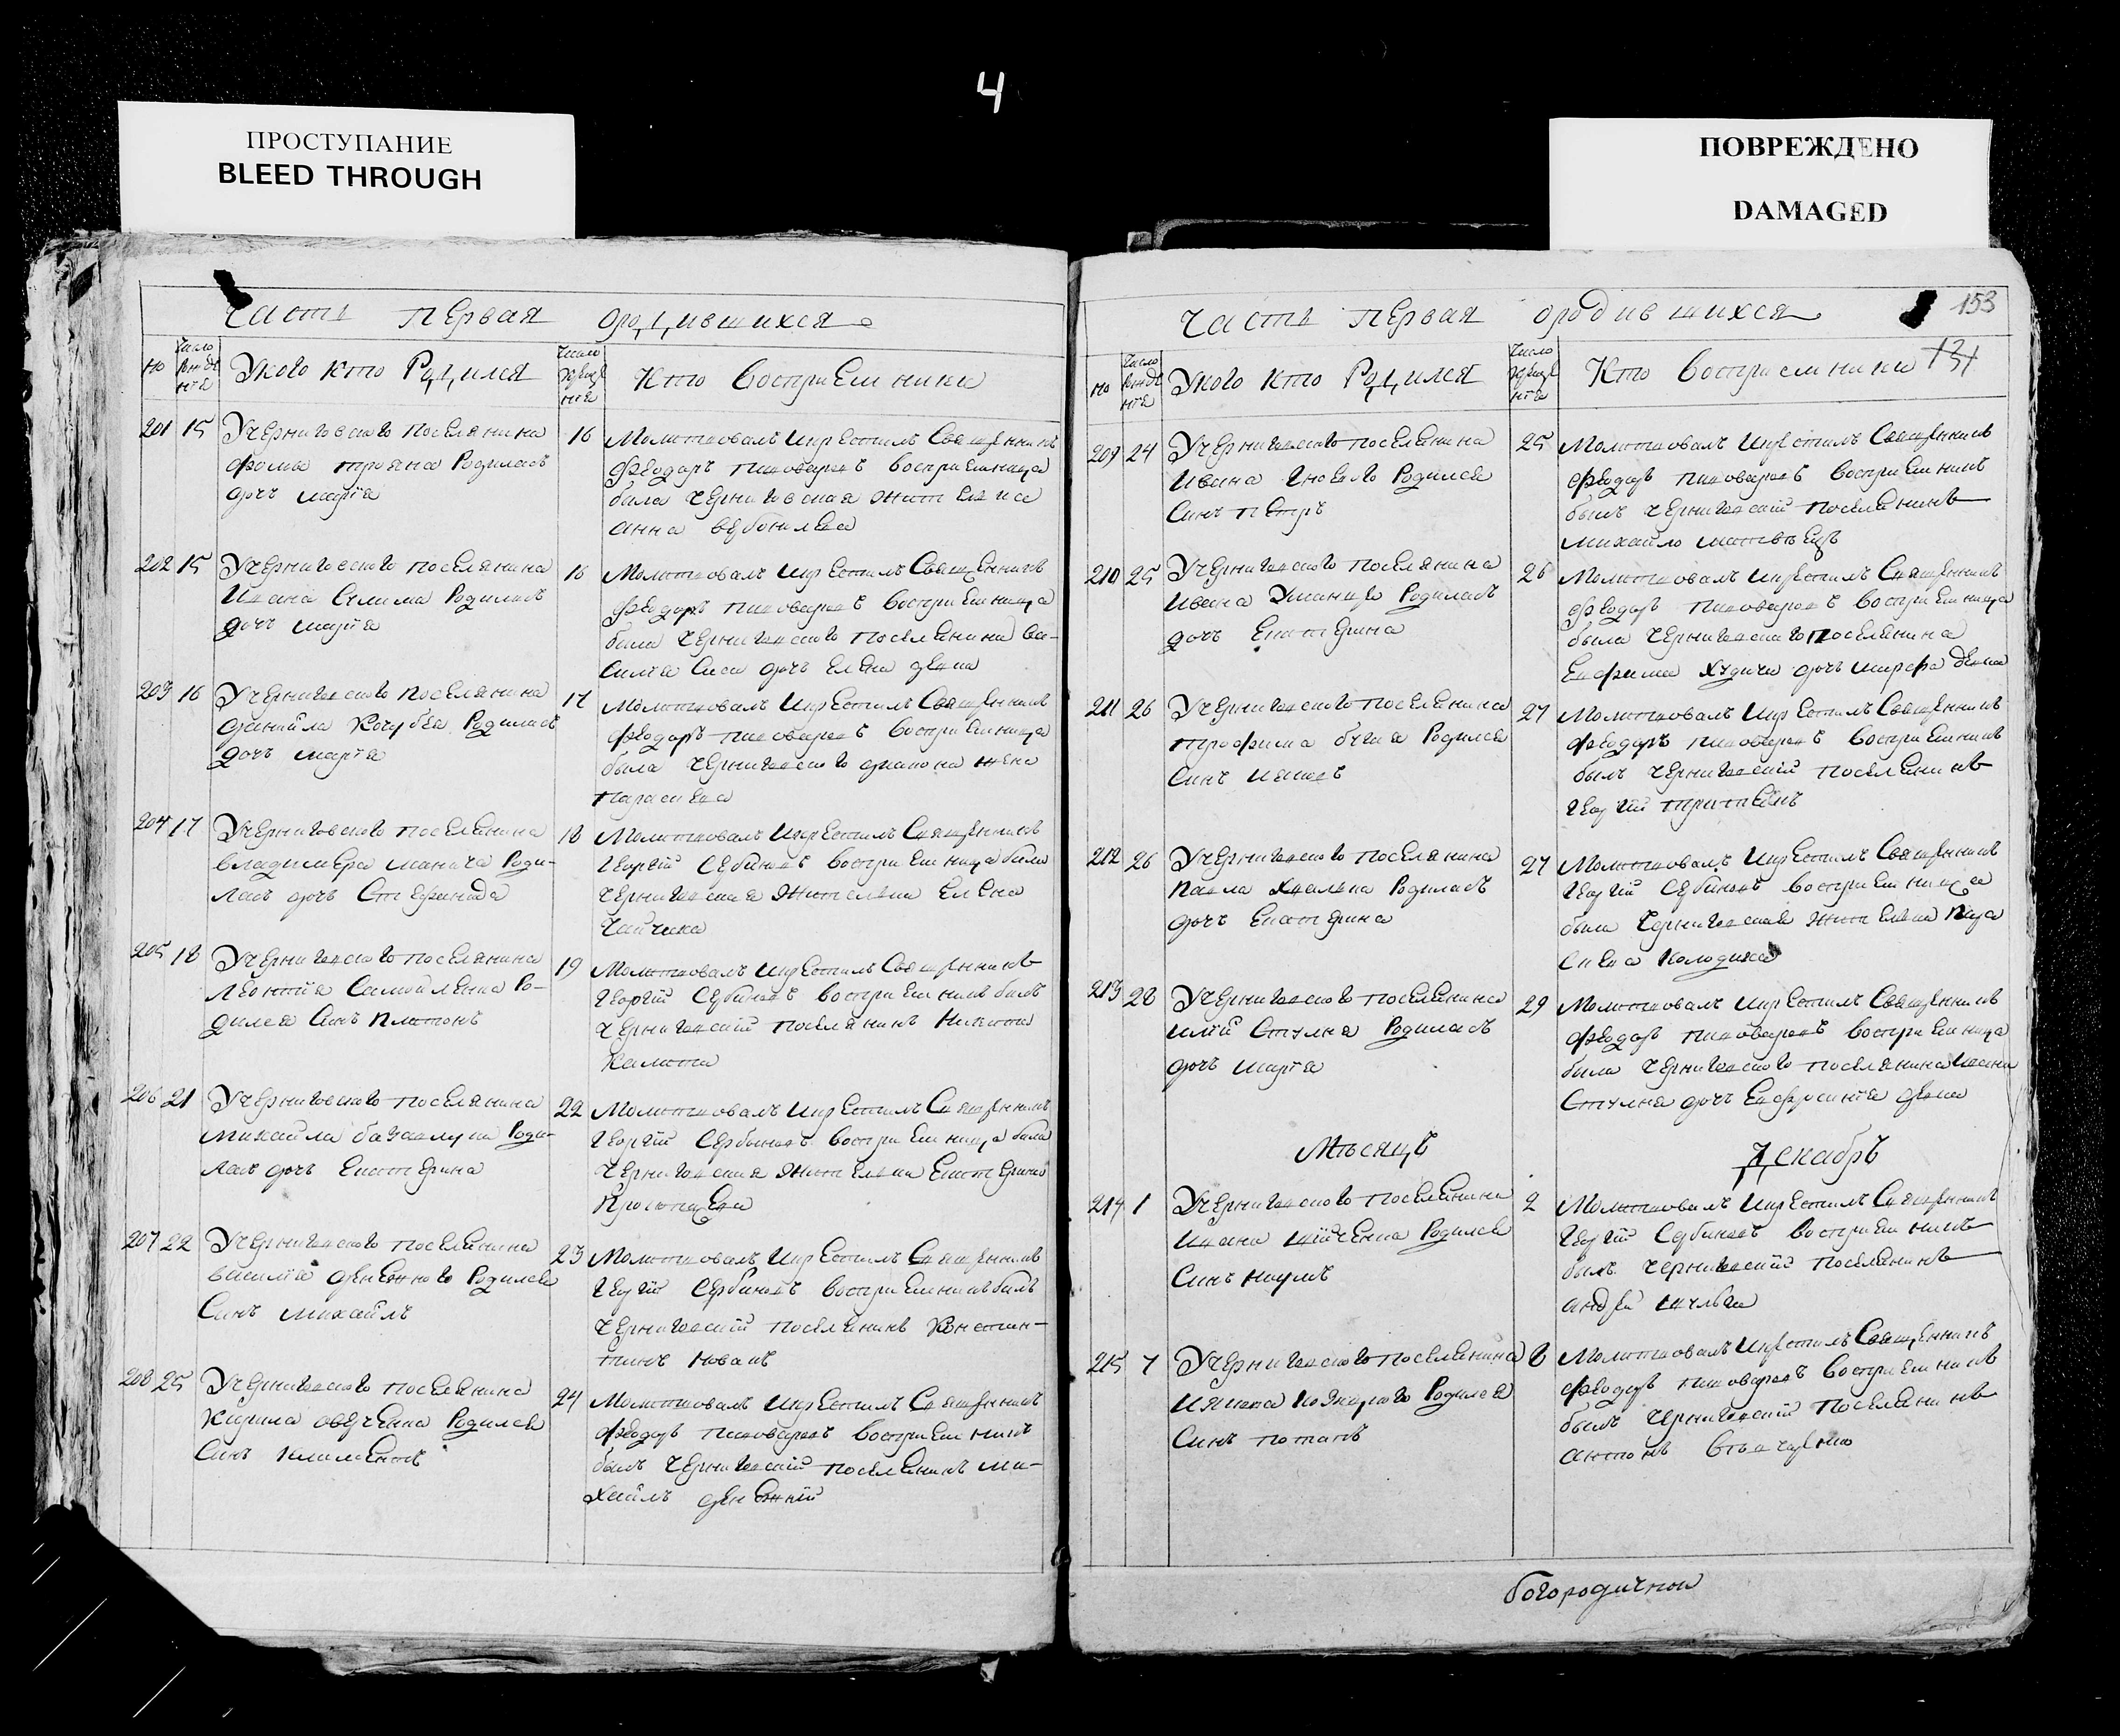 4
ПРОСТУПАНИЕ
BLEED THROUGH
ПОВРЕЖДЕНО
DAMAGED
Часть первая ородившихся
но
Число рожде нїя
Укого кто Родился
Число креще нїя
Кто восприемники
201 15 Учерниговского поселянина
Фомы трояна Родилась
дочь марїя
16 Молитвовалъ икрестилъ Священникъ
Феодоръ пивоваровъ восприемница
была черниговская жителка
анна
202 15 Учерниговского поселянина
Ивана Родилась
дочь марїя
16 Молитвовалъ икрестилъ Священникъ
Феодоръ пивоваровъ восприемница
была черниговского поселянина ва-
силїя дочь елена девка
203 16 Учерниговского поселянина
данийла Кочубея Родилась
дочь марїя
17 Молитвовалъ икрестилъ Священникъ
Феодоръ пивоваровъ восприемница
была черниговского диакона жена
параскева
204 17 Учерниговского поселянина
владимера Роди-
лась дочь Стефанида
18 Молитвовалъ икрестилъ Священникъ
георгїй Сербиновъ восприемница была
черниговская жителка елена
Чайчиха
205 18 Учерниговского поселянина
леонтїя Самойленка Ро-
дился Синъ платонъ
19 Молитвовалъ икрестилъ Священникъ
георгїй Сербиновъ восприемникъ былъ
черниговскїй поселянинъ Никита
Калита
206 21 Учерниговского поселянина
михайла Роди-
лась дочь екатерина
22 Молитвовалъ икрестилъ Священникъ
георгїй Сербиновъ восприемница была
черниговская жителка екатерина
207 22 Учерниговского поселянина
василїя денежного Родился
Синъ михайлъ
23 Молитвовалъ икрестилъ Священникъ
георгїй Сербиновъ восприемникъ былъ
черниговскїй поселянинъ Констан-
тинъ новакъ
208 23 Учерниговского поселянина
Кирила овдеенка Родился
Синъ климентъ
24 Молитвовалъ икрестилъ Священникъ
Феодоръ пивоваровъ восприемникъ
былъ черниговскїй поселянинъ ми-
хайлъ денежнїй
153
Часть первая ородившихся
но
Число рожде нїя
Укого кто Родился
Число креще нїя
Кто восприемники
209 24 Учерниговского поселянина
Ивана гноевого Родился
Синъ петръ
25 Молитвовалъ икрестилъ Священникъ
Феодоръ пивоваровъ восприемникъ
былъ черниговскїй поселянинъ
михайло матвѣецъ
210 25 Учерниговского поселянина
Ивана Уманця Родилась
дочь екатерина
26 Молитвовалъ икрестилъ Священникъ
Феодоръ пивоваровъ восприемница
была черниговского поселянина
евфима дочь марфа девка
211 26 Учерниговского поселянина
трофима Родился
Синъ
27 Молитвовалъ икрестилъ Священникъ
Феодоръ пивоваровъ восприемникъ
былъ черниговскїй поселянинъ
георгїй
212 26 Учерниговского поселянина
павла Родилась
дочь екатерина
27 Молитвовалъ икрестилъ Священникъ
георгїй Сербиновъ восприемница
была черниговская жителка пара
скева
213 28 Учерниговского поселянина
илїй Родилась
дочь марїя
29 Молитвовалъ икрестилъ Священникъ
Феодоръ пивоваровъ восприемница
была черниговского поселянина ивана
дочь евфросинїя девка
Мѣсяцъ Декабрь
214 1 Учерниговского поселянина
Ивана Родился
Синъ наумъ
2 Молитвовалъ икрестилъ Священникъ
георгїй Сербиновъ восприемникъ
былъ черниговскїй поселянинъ
андрей шульга
215 7 Учерниговского поселянина
Родился
Синъ потапъ
8 Молитвовалъ икрестилъ Священникъ
Феодоръ пивоваровъ восприемникъ
былъ черниговскїй поселянинъ
антонъ
богородичной